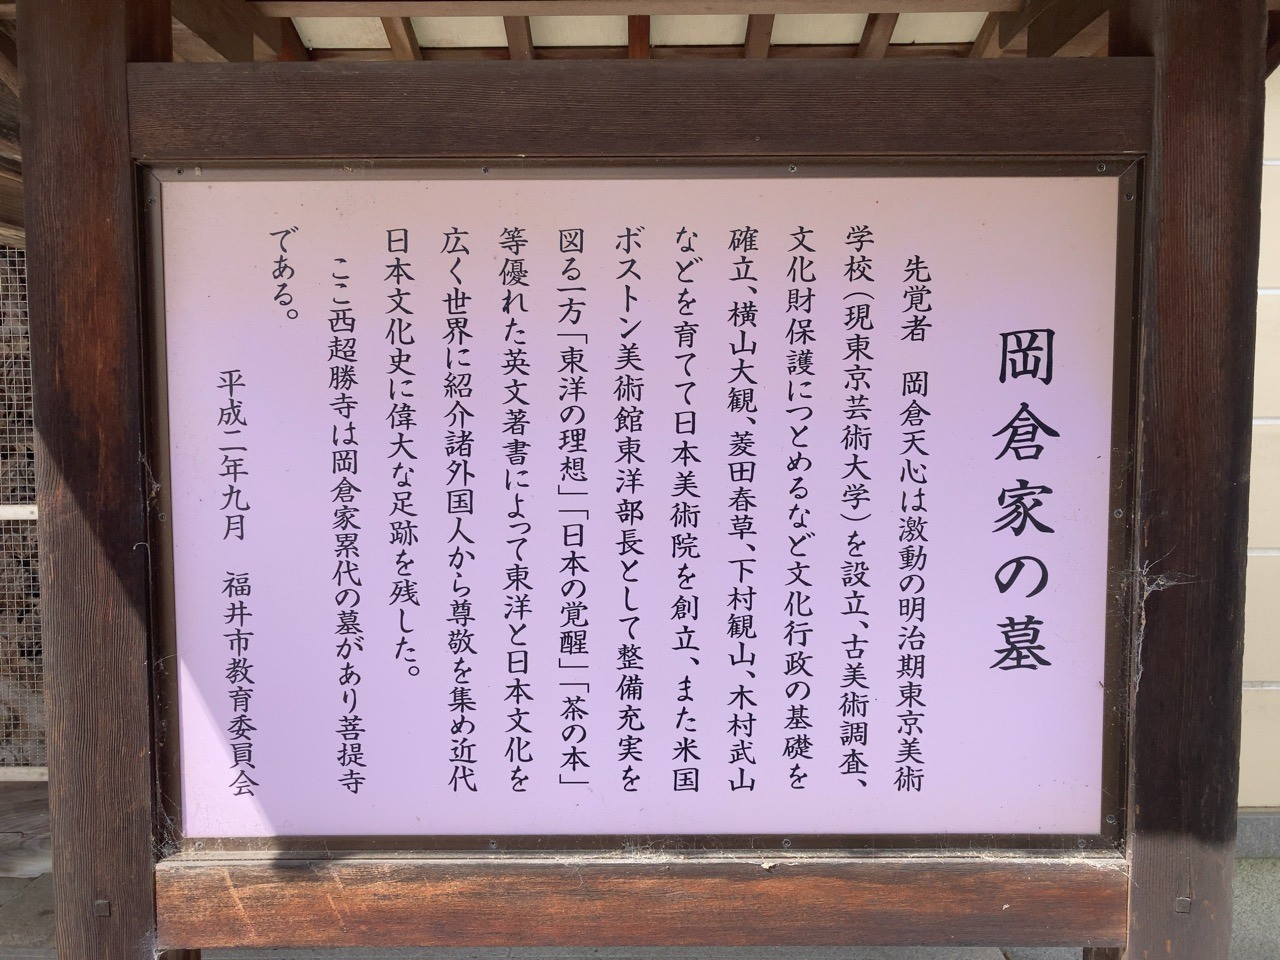 岡倉家の墓
先覚者　岡倉天心は激動の明治期東京美術
学校（現東京芸術大学）を設立、古美術調査、
文化財保護につとめるなど文化行政の基礎を
確立、横山大観、菱田春草、下村観山、木村武山
などを育てて日本美術院を創立、また米国
ボストン美術館東洋部長として整備充実を
図る一方「東洋の理想」「日本の覚醒」「茶の本」
等優れた英文著書によって東洋と日本文化を
広く世界に紹介諸外国人から尊敬を集め近代
日本文化史に偉大な足跡を残した。
ここ西超勝寺は岡倉家累代の墓があり菩提寺
である。
平成二年九月　福井市教育委員会